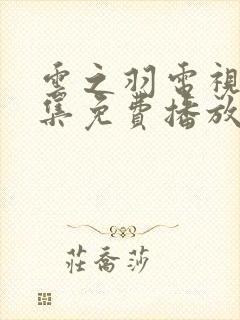 雲之羽電視
集免費播放
莊喬莎